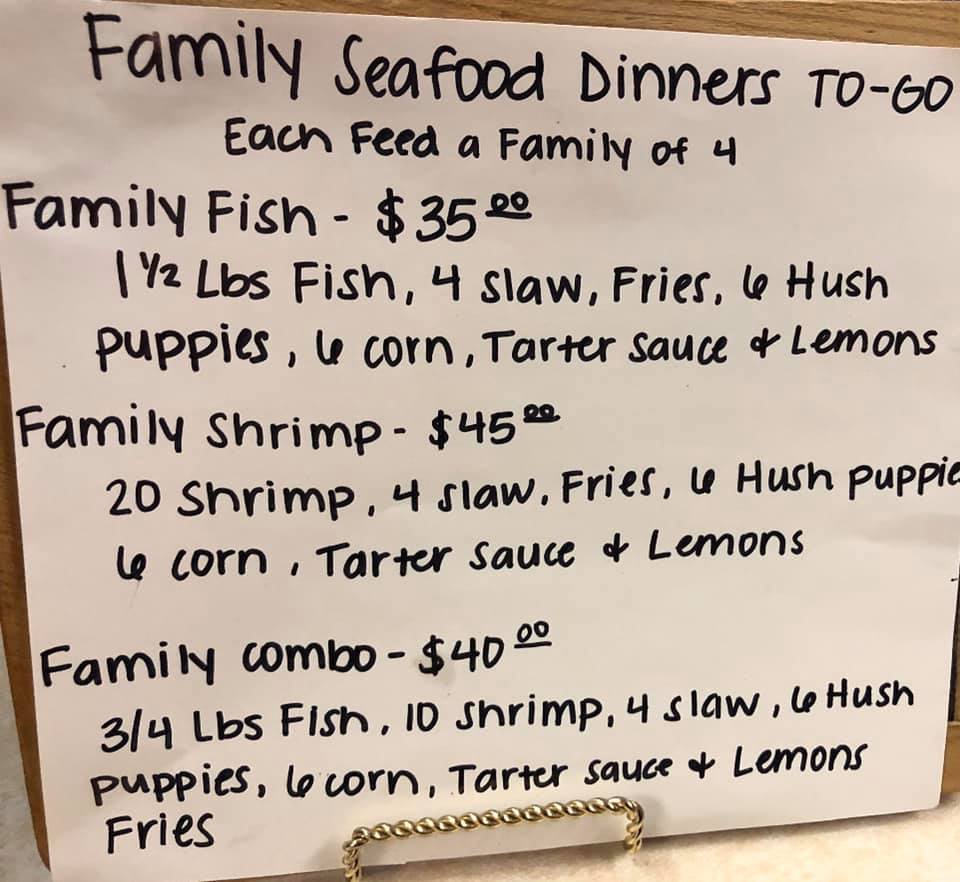 Family Seafood Dinners TO-GO
Each Feed a Family of 4
Family Fish - $35.00
1 1/2 Lbs Fish, 4 slaw, Fries, 6 Hush
puppies, 6 corn, Tarter sauce & Lemons
Family Shrimp - $45.00
20 Shrimp, 4 slaw, Fries, 6 Hush puppie
6 corn, Tarter sauce & Lemons
Family combo - $40.00
3/4 Lbs Fish, 10 shrimp, 4 slaw, 6 Hush
puppies, 6 corn, Tarter sauce & Lemons
Fries